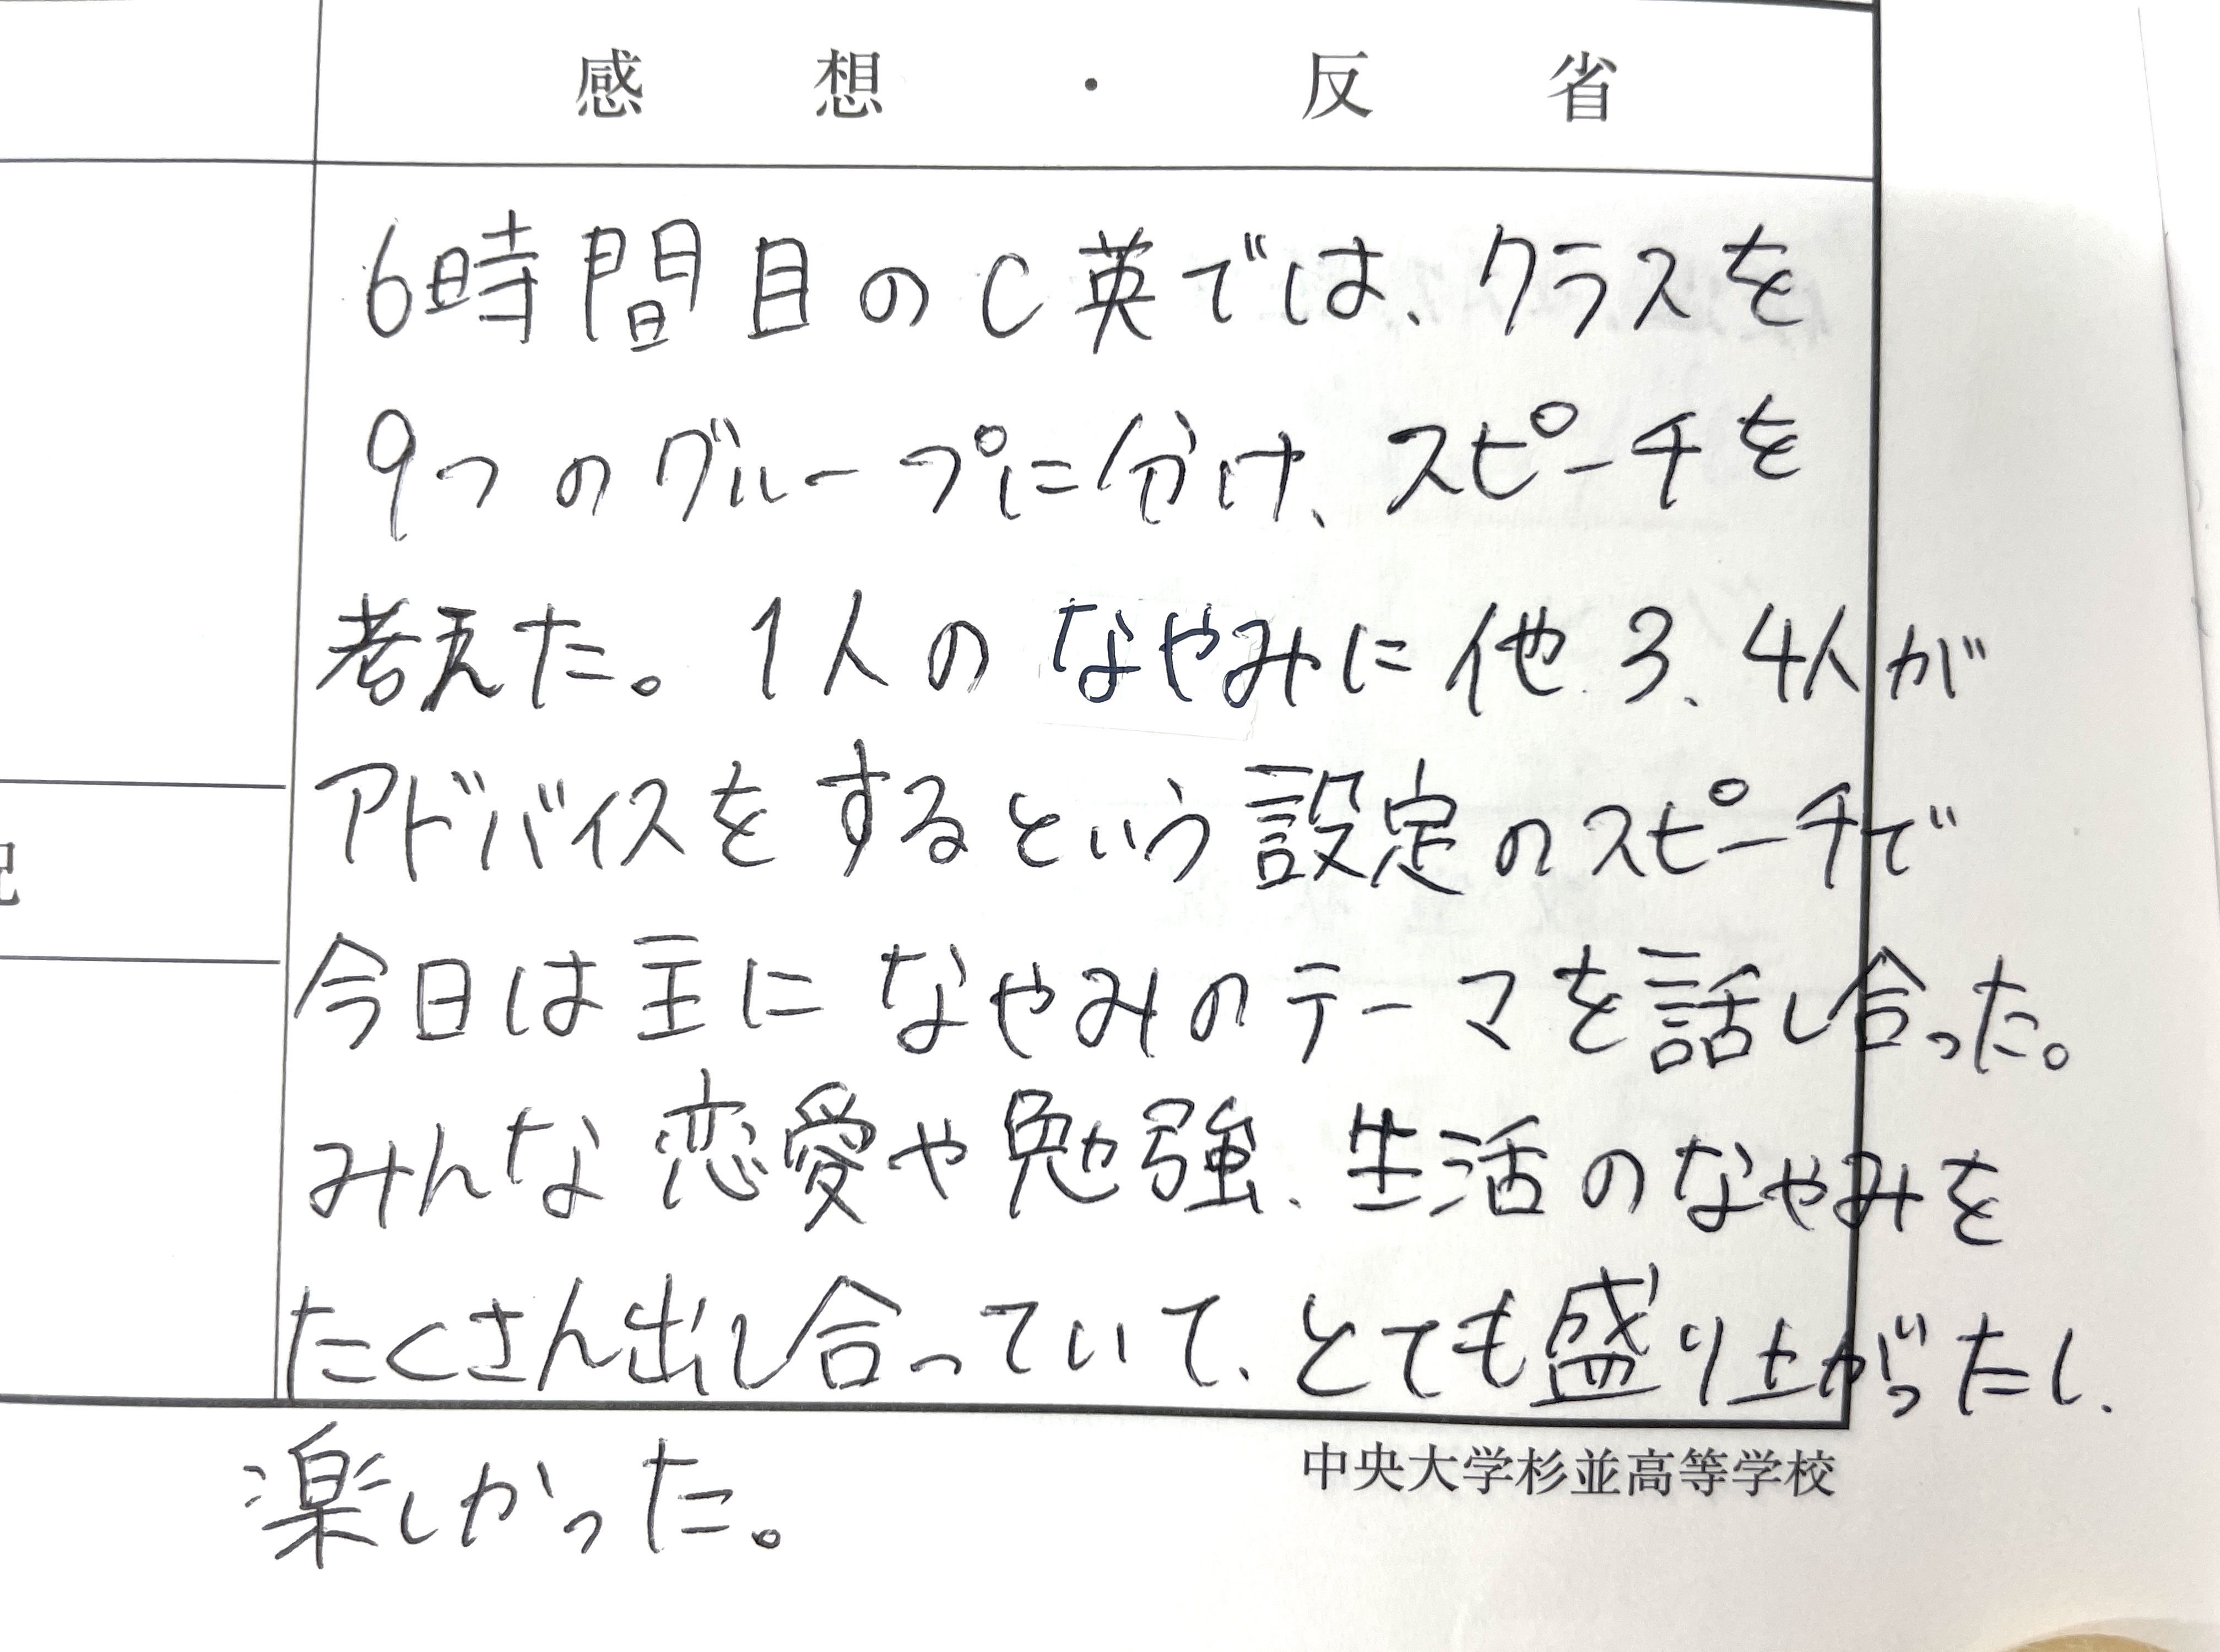 感想・反省
6時間目のC英では、クラスを
9つのグループに分け、スピーチを
考えた。1人のなやみに他3、4人が
アドバイスをするという設定のスピーチで
今日は主になやみのテーマを話し合った。
みんな恋愛や勉強、生活のなやみを
たくさん出し合っていて、とても盛り上がったし、
楽しかった。
中央大学杉並高等学校